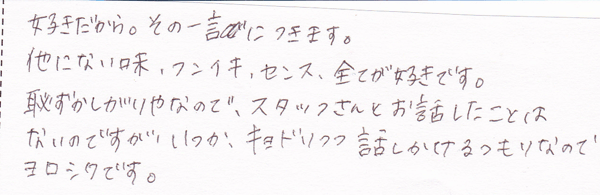 好きだから。その一言につきます。
他にない味、フンイキ、センス、全てが好きです。
恥ずかしがりやなので、スタッフさんとお話したことは
ないのですがいつか、キョドリつつ話しかけるつもりなので
ヨロシクです。